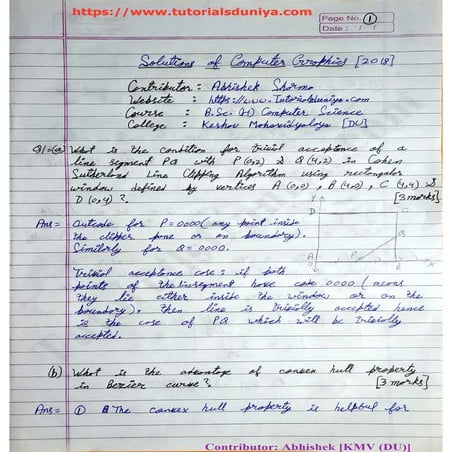 https://www.tutorialsduniya.com
Page No. 1
Date: / /
Solutions of Computer Graphics [2018]
Contributor : Abhishek Sharma
Website : https://www.Tutorialsduniya.com
Course : B.Sc. (H) Computer Science
College : Keshav Mahavidyalaya [DU]
Q1=(a) What is the condition for trivial acceptance of a
line segment PQ with P(0,2) & Q(4,2) in Cohen
Sutherland Line Clipping Algorithm using rectangular
window defined by vertices A(0,0), B(4,0), C(4,4) &
D(0,4) ? [3 marks]
Ans = Outcode for P = 0000 (any point inside
the clipper pane or on boundary).
Similarly for Q = 0000.
Y
D
C
Q
A
P
B
X
Trivial acceptance case : if both
points of the linesegment have code 0000 (means
they lie either inside the window or on the
boundary), then line is trivially accepted hence
is the case of PQ which will be trivially
accepted.
(b) What is the advantage of convex hull property
in Bezier curve? [3 marks]
Ans = ① The convex hull property is helpful for
Contributor: Abhishek [KMV (DU)]